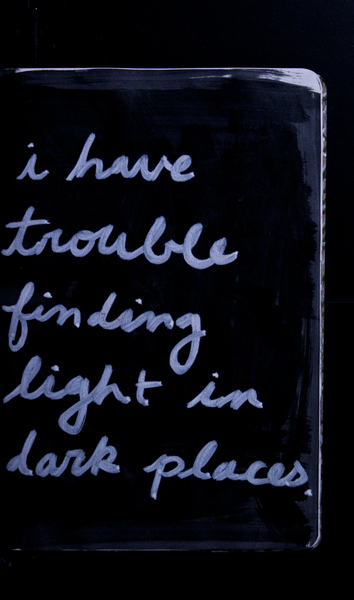 i have
trouble
finding
light in
dark places.